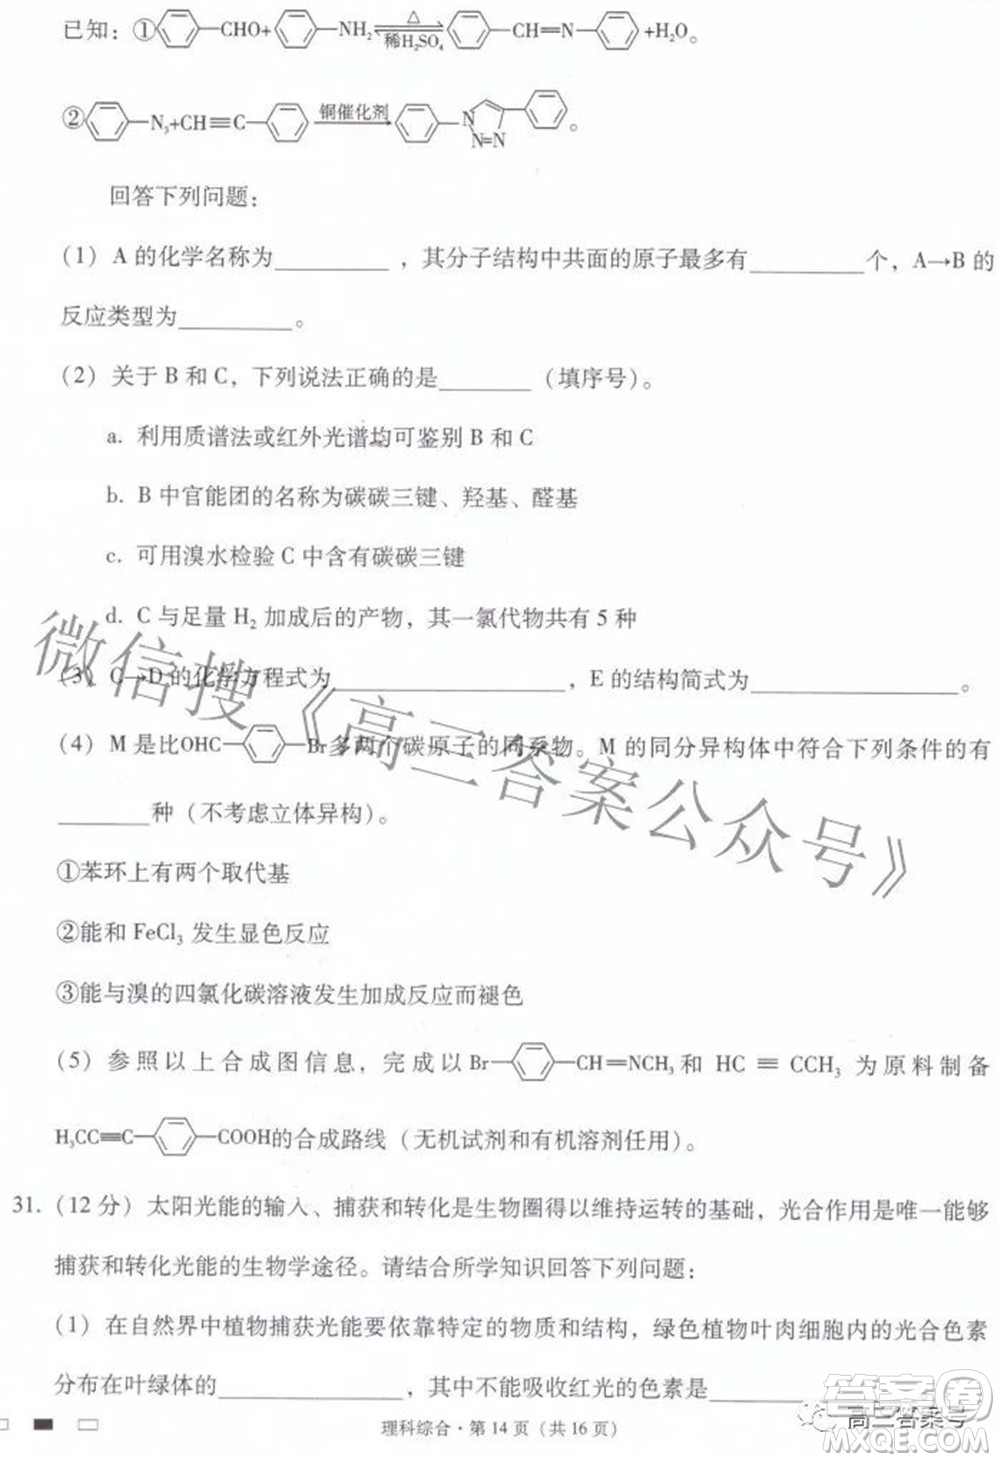 已知：①CHO+NH₂ △ 稀H₂SO₄ CH═N+H₂O。
②N₃+CH≡C 铜催化剂 N N═N。
回答下列问题：
(1) A 的化学名称为________，其分子结构中共面的原子最多有________个，A→B 的
反应类型为________。
(2) 关于 B 和 C，下列说法正确的是________（填序号）。
a. 利用质谱法或红外光谱均可鉴别 B 和 C
b. B 中官能团的名称为碳碳三键、羟基、醛基
c. 可用溴水检验 C 中含有碳碳三键
d. C 与足量 H₂ 加成后的产物，其一氯代物共有 5 种
(3) C→D 的化学方程式为________，E 的结构简式为________。
(4) M 是比OHC—Br多两个碳原子的同系物。M 的同分异构体中符合下列条件的有
________种（不考虑立体异构）。
①苯环上有两个取代基
②能和 FeCl₃ 发生显色反应
③能与溴的四氯化碳溶液发生加成反应而褪色
(5) 参照以上合成图信息，完成以 Br—CH═NCH₃ 和 HC≡CCH₃ 为原料制备
H₃CC≡C—COOH的合成路线（无机试剂和有机溶剂任用）。
31.（12 分）太阳光能的输入、捕获和转化是生物圈得以维持运转的基础，光合作用是唯一能够
捕获和转化光能的生物学途径。请结合所学知识回答下列问题：
(1) 在自然界中植物捕获光能要依靠特定的物质和结构，绿色植物叶肉细胞内的光合色素
分布在叶绿体的________，其中不能吸收红光的色素是________
理科综合·第 14 页（共 16 页）
微信搜《高三答案公众号》
高三答案号
答案圈